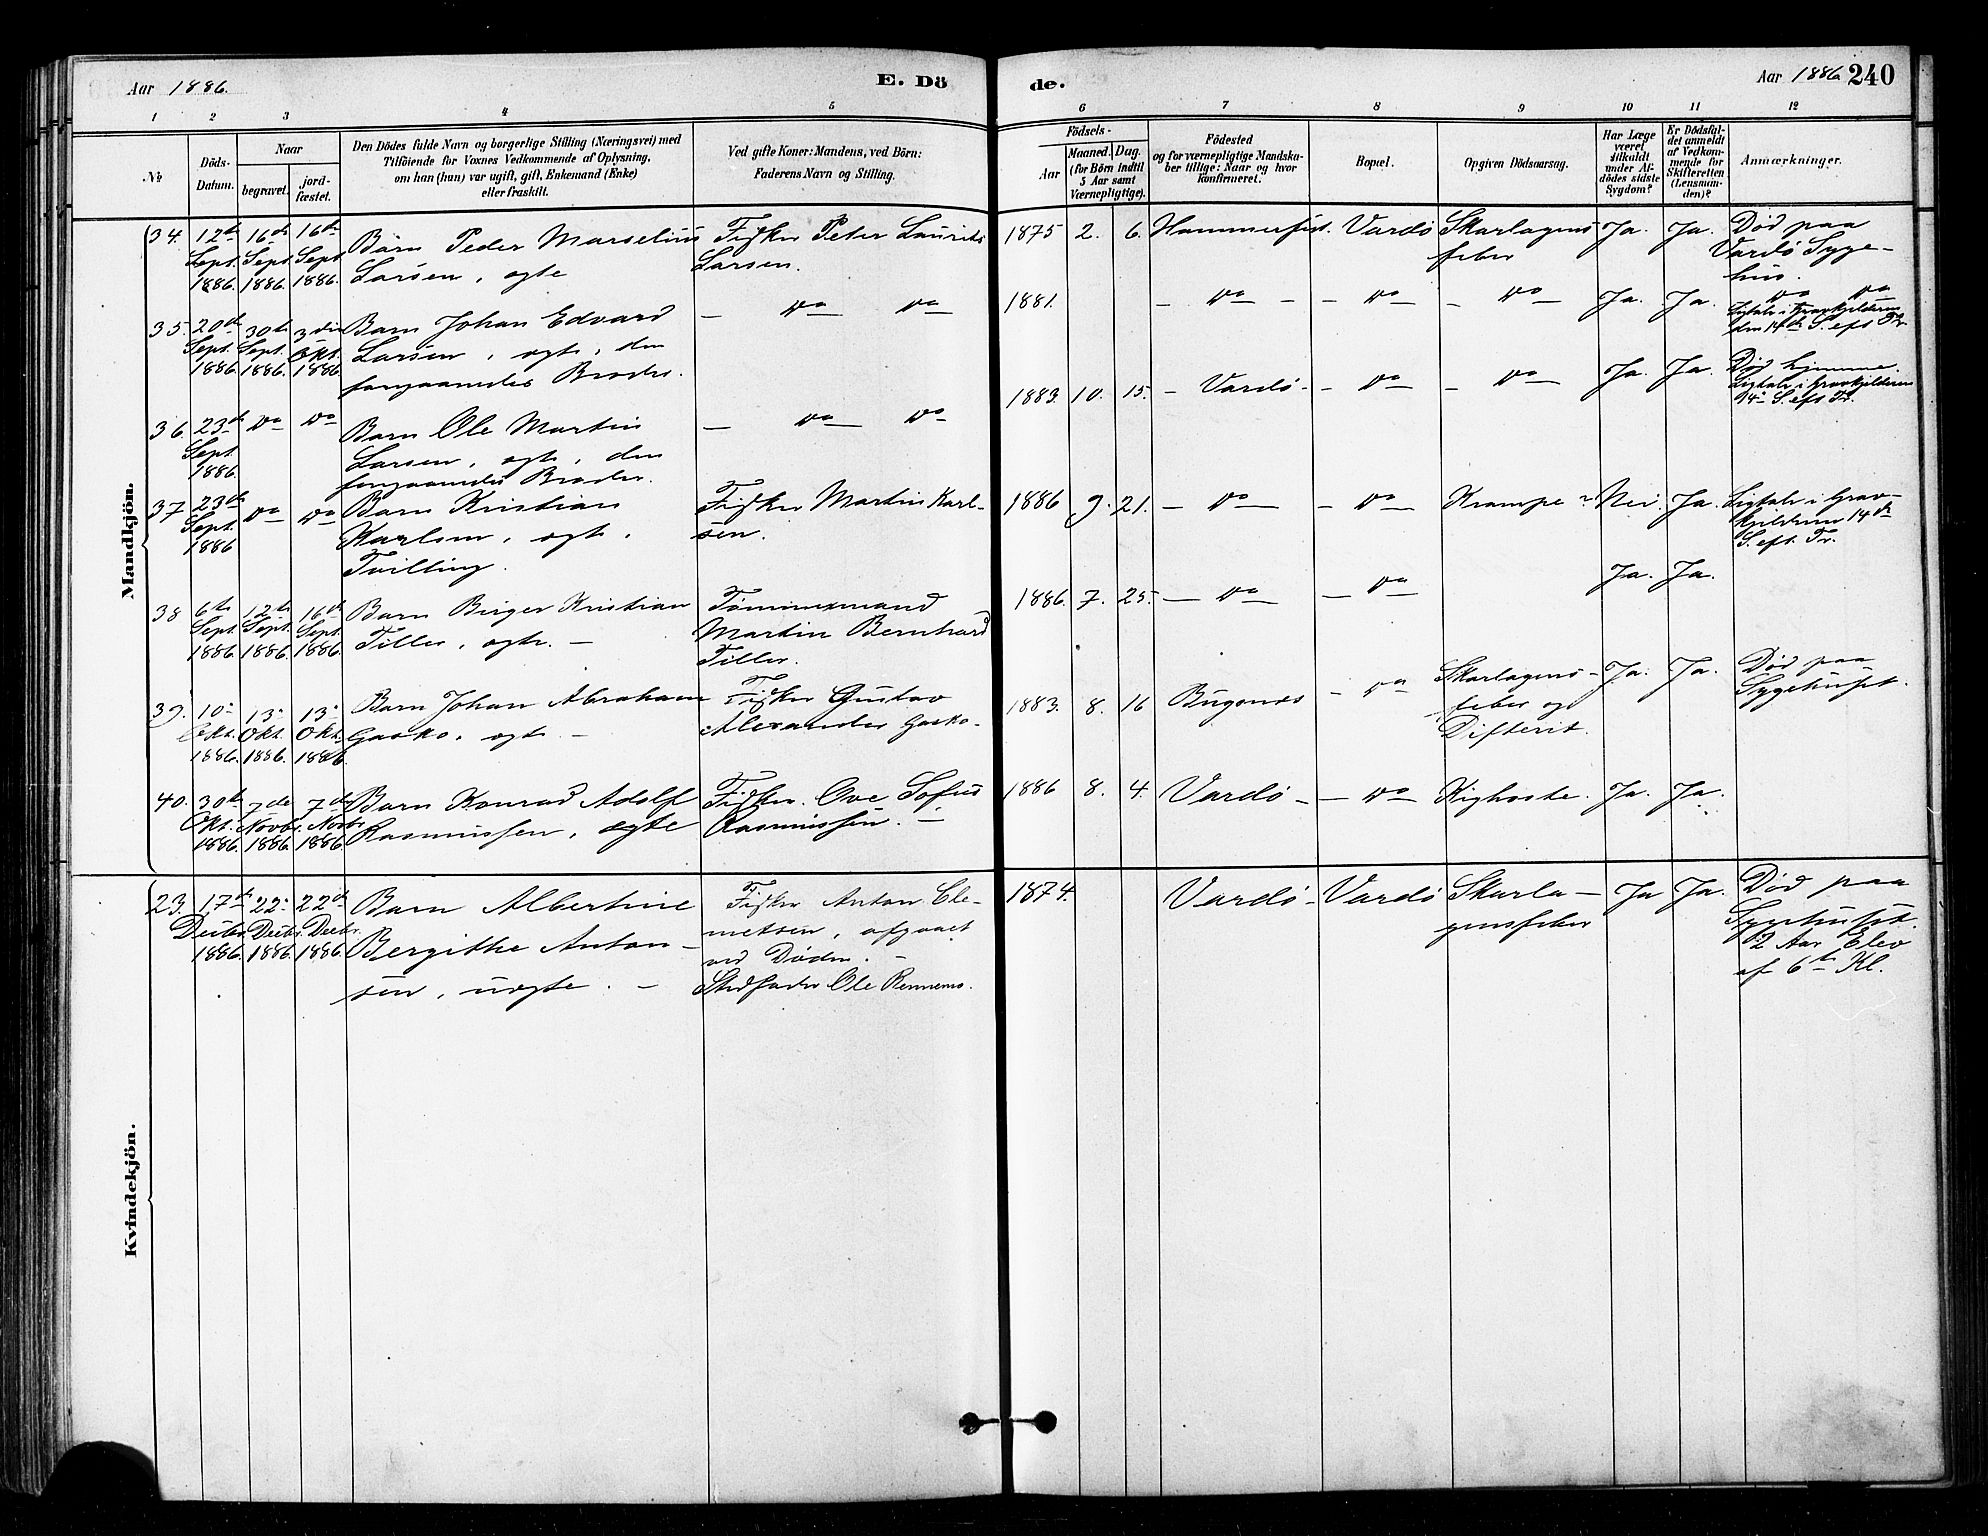 Aar 1886.
E. Dö
de.
Aar 1886
240
1 2 3 4 5 6 7 8 9 10 11 12
No
Döds-
Datum.
Naar
begravet.
jord-
fæstet.
Den Dödes fulde Navn og borgerlige Stilling (Næringsvei) med
Tilföiende for Voxnes Vedkommende af Oplysning,
om han (hun) var ugift, gift, Enkemand (Enke)
eller fraskilt.
Ved gifte Koner: Mandens, ved Börn:
Faderens Navn og Stilling.
Födsels-
Aar
Maaned. Dag.
(for Börn indtil
5 Aar samt
Værnepligtige).
Födested
og for værnepligtige Mandska-
ber tillige: Naar og hvor
konfirmeret.
Bopæl.
Opgiven Dödsaarsag.
Har Læge
været
tilkaldt
under Af-
dödes sidste
Sygdom?
Er Dödsfal-
det anmeldt
af Vedkom-
mende for
Skifteretten
(Lensman-
den)?
Anmærkninger.
Mandkjön.
34.
12te
Sept.
1886.
16de
Sept.
1886.
16de
Sept
1886.
Barn Peder Marselius
Larsen, ægte
Fisker Peter Laurits
Larsen.
1875 2. 6. Hammerfest. Vardö Skarlagens
feber
Ja. Ja. Död paa
Vardö Syge-
hus.
35.
20de
Sept.
1886
30te
Sept.
1886.
3die
Okt.
1886.
Barn Johan Edvard
Larsen, ægte, den
foregaaendes Broder.
— Do — Do
1881. — Do — — Do — — Do — Ja. Ja. Do Do
Ligtale i Gravkjelderen
den 14de S. eft Tr.
36.
23de
Sept
1886
Do Do
Barn Ole Martin
Larsen, ægte, den
foregaaendes Broder.
— Do — Do
1883. 10. 15. — Vardö — — Do — — Do — Ja. Ja. Död hjemme.
Ligtale i Gravkjelderen
14de S. eft Tr.
37
23de
Sept.
1886
Do Do
Barn Kristian
Karlsen, ægte,
Tvilling.
Fisker Martin Karl-
sen.
1886 9. 21. — Do — — Do — Krampe ? Nei. Ja. Ligtale i Grav-
kjelderen 14de
S. eft. Tr.
38
6te
Sept.
1886.
12te
Sept.
1886.
16de
Sept.
1886.
Barn Birger Kristian
Tiller, ægte. —
Tömmermand
Martin Bernhard
Tiller.
1886. 7. 25. — Do — — Do — Ja. Ja.
39.
10de
Okt.
1886.
13de
Okt.
1886.
13de
Okt.
1886.
Barn Johan Abraham
Gasko, ægte —
Fisker Gustav
Alexander Gasko.
1883. 8. 16 Bugönes — Do Skarlagens-
feber og
Difterit.
Ja. Ja. Död paa
Sygehuset.
40.
30te
Okt.
1886.
7de
Novbr.
1886.
7de
Novbr
1886.
Barn Konrad Adolf
Rasmussen, ægte
Fisker Ove Sofus
Rasmussen. —
1886 8. 4. Vardö — — Do — Kighoste. Ja. Ja.
Kvindekjön.
23.
17de
Decbr.
1886.
22de
Decbr.
1886.
22de
Decbr.
1886.
Barn Albertine
Bergithe Anton-
sen, uægte. —
Fisker Anton Cle-
metsen, afgaaet
ved Döden. —
Stedfader Ole Rennemo.
1874. Vardö — Vardö Skarla-
gensfeber
Ja Ja. Död paa
Sygehuset.
2 Aar Elev
af 6te Kl.